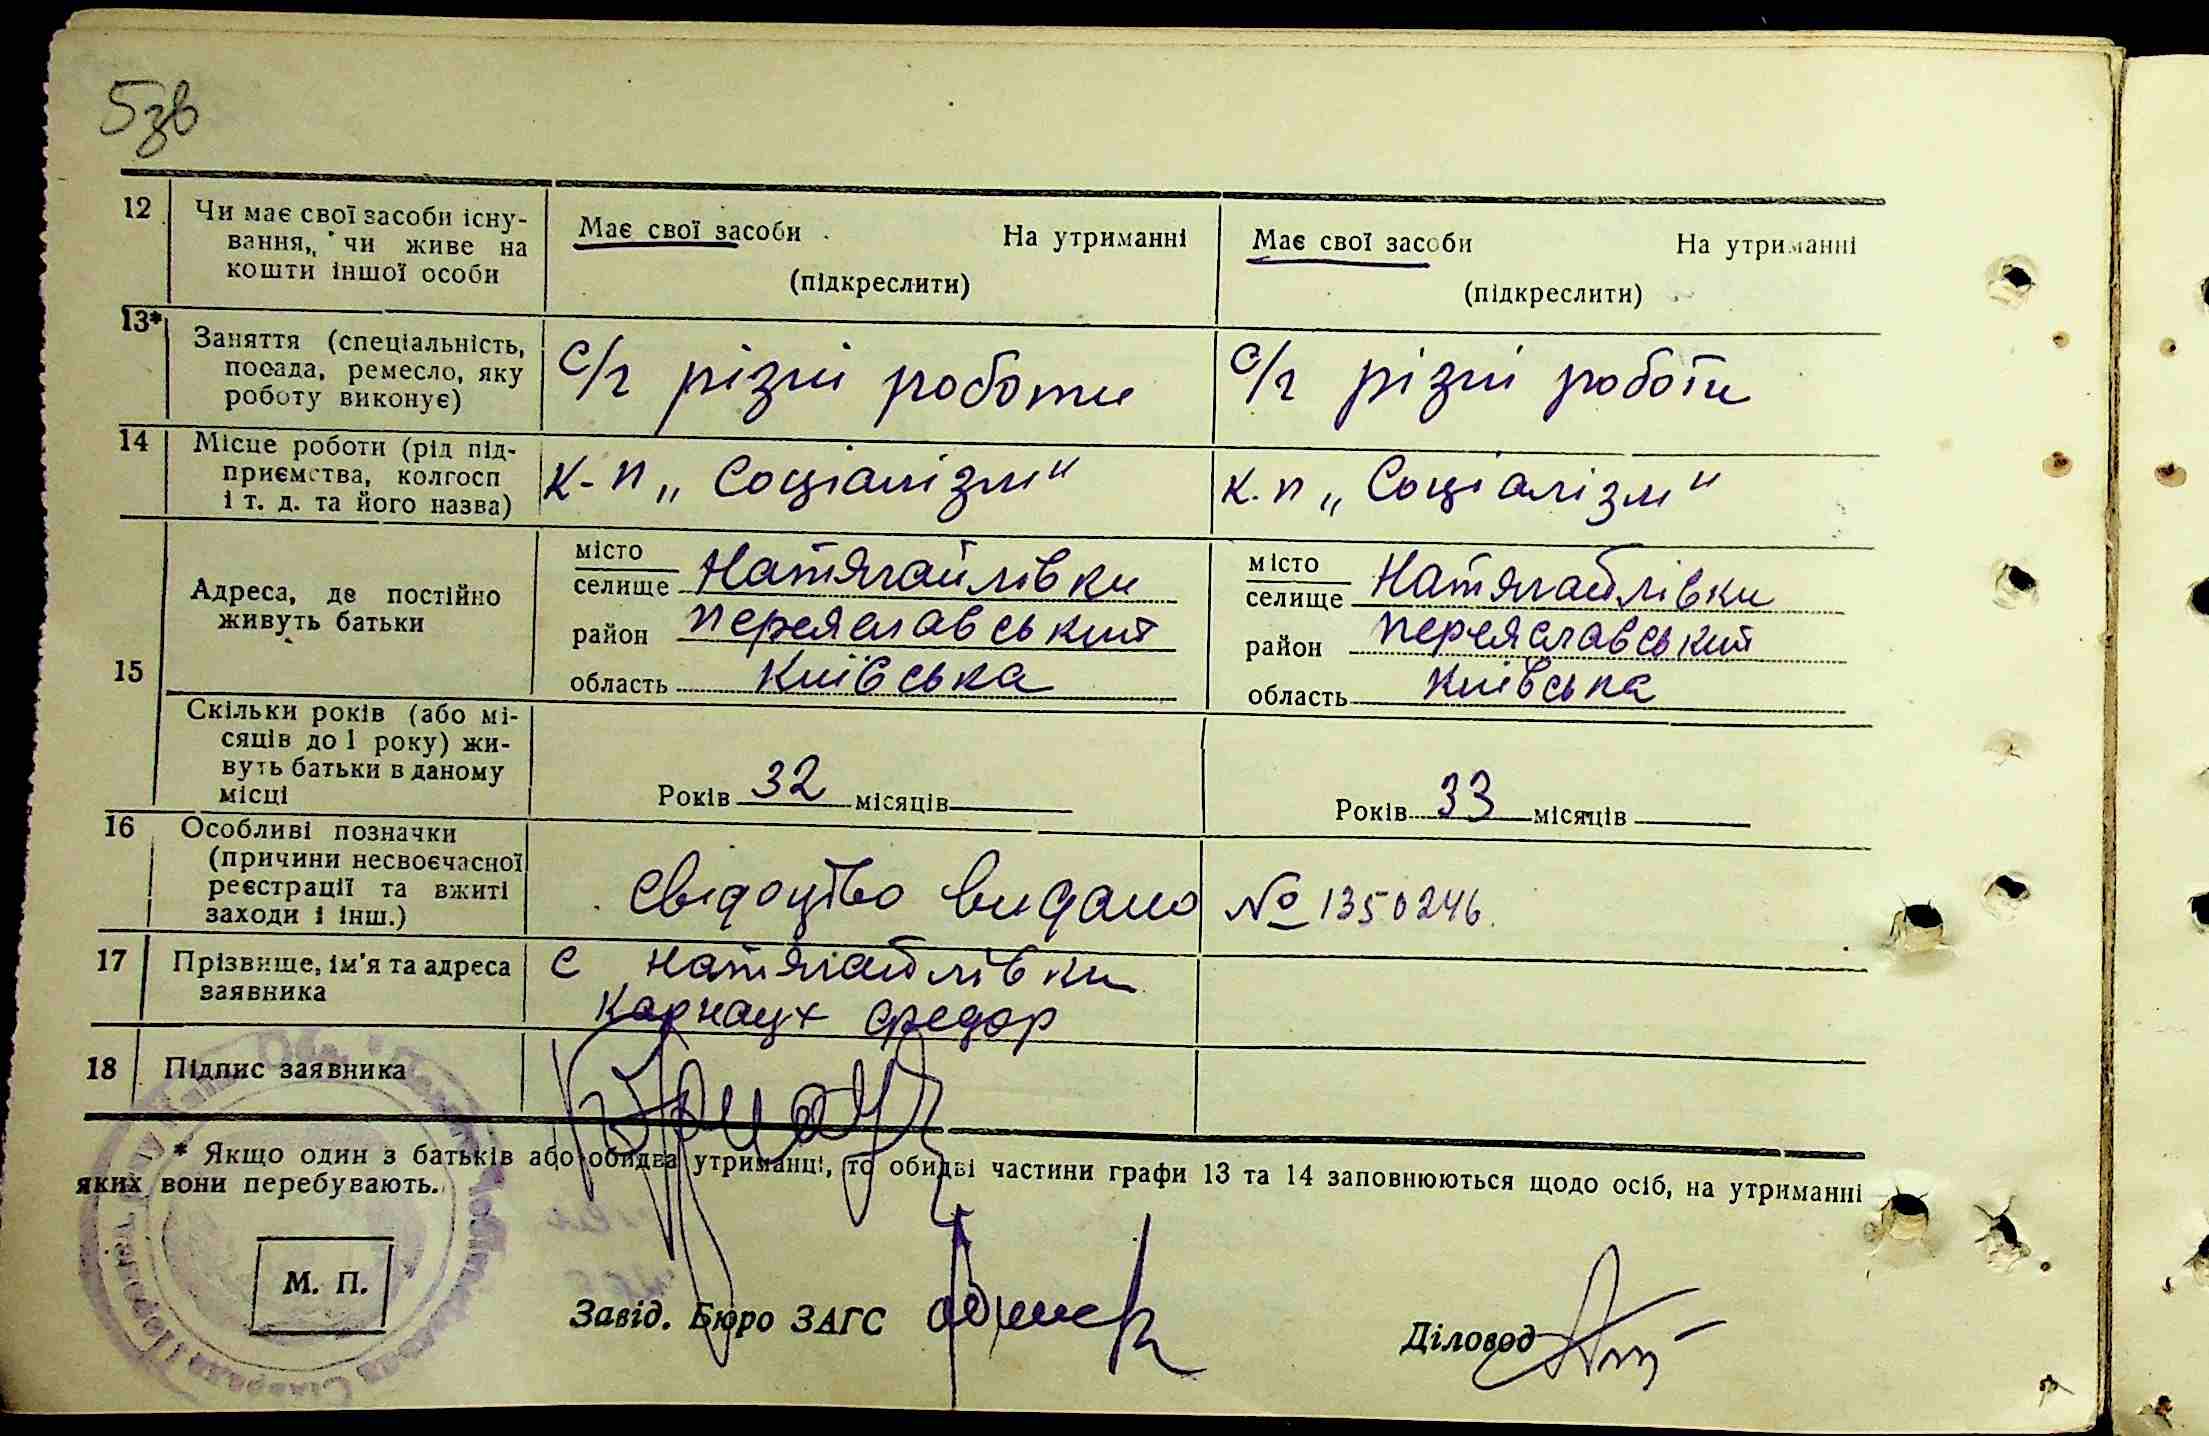 5зв
12 Чи має свої засоби існу-
вання, чи живе на
кошти іншої особи
Має свої засоби На утриманні
(підкреслити)
Має свої засоби На утриманні
(підкреслити)
13* Заняття (спеціальність,
посада, ремесло, яку
роботу виконує)
с/г різні роботи
с/г різні роботи
14 Місце роботи (рід під-
приємства, колгосп
і т. д. та його назва)
к-п „Соціалізм"
к.п „Соціалізм"
15
Адреса, де постійно
живуть батьки
місто
селище Натягайлівки
район переяславський
область київська
місто
селище Натягайлівки
район переяславський
область київська
Скільки років (або мі-
сяців до 1 року) жи-
вуть батьки в даному
місці
Років 32 місяців
Років 33 місяців
16 Особливі позначки
(причини несвоєчасної
реєстрації та вжиті
заходи і інш.)
свідоцтво видано № 1350246.
17 Прізвище, ім'я та адреса
заявника
с натягайлівки
карнаух федор
18 Підпис заявника
* Якщо один з батьків або обидва утриманці, то обидві частини графи 13 та 14 заповнюються щодо осіб, на утриманні
яких вони перебувають.
М. П.
Завід. Бюро ЗАГС
Діловод